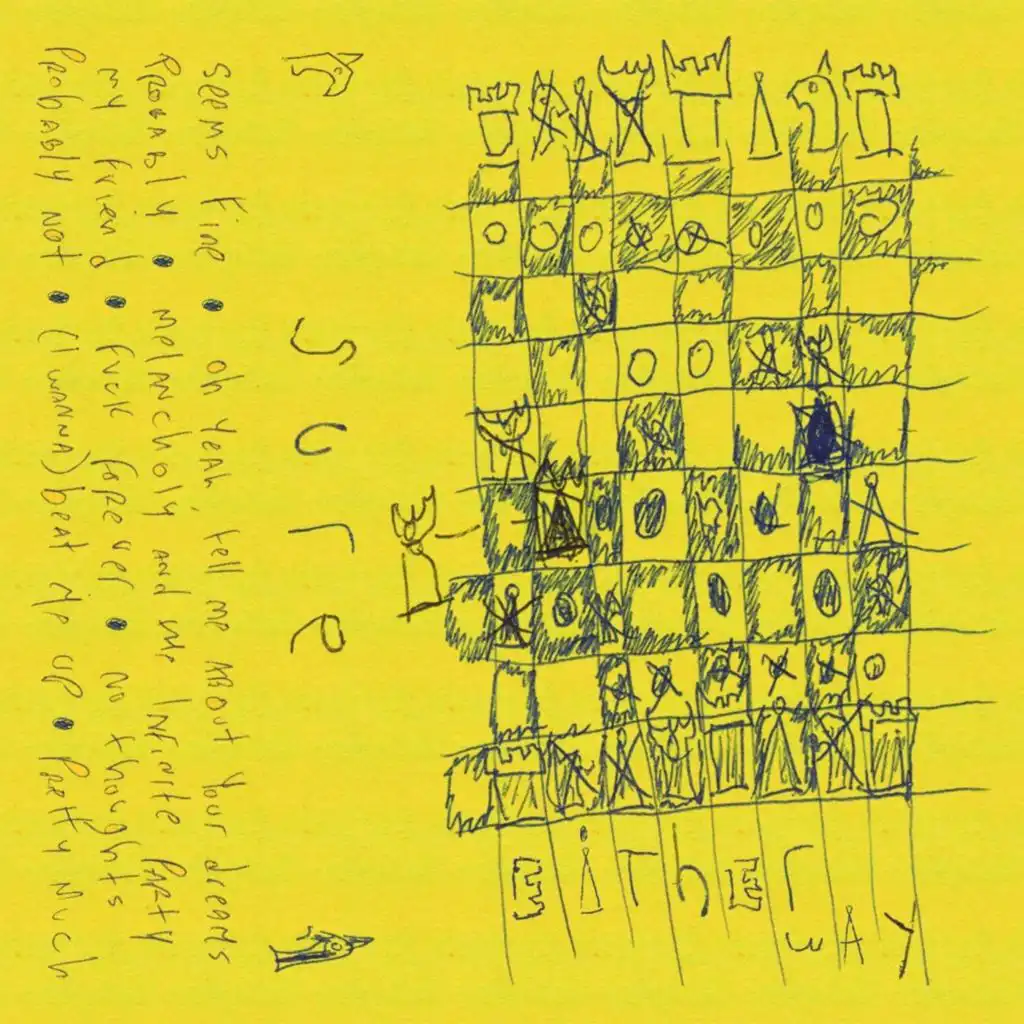 Seems Fine • oh yeah, tell me about your dreams
Probably • melancholy and the Infinite Party
my friend • fuck forever • no thoughts
Probably not • (I wanna) beat me up • Pretty Much
SUre
EiThEr
wAy